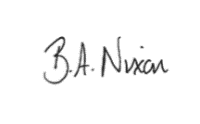 B.A. Nixon